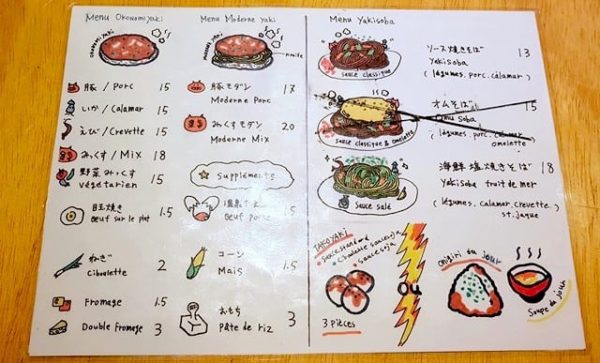 Menu Okonomiyaki
okonomiyaki
豚 / Porc 15
いか / Calamar 15
えび / Crevette 15
みっくす / Mix 18
野菜 みっくす 15
végétarien
目玉焼き 1.5
Oeuf sur le plat
ねぎ 2
Ciboulette
Fromage 1.5
Double fromage 3
Menu Moderne yaki
豚モダン 17
Moderne Porc
みっくすモダン 20
Moderne Mix
Suppléments
1.5
Oeuf
コーン 1.5
Maïs
おもち 3
Pâte de riz
Menu Yakisoba
sauce classique
ソース焼きそば 13
Yakisoba
(légumes, porc, calamar)
sauce classique & omelette
オムそば 15
Omu Soba
(légumes, porc, calamar
omelette)
sauce salé
海鮮塩焼きそば 18
Yakisoba fruit de mer
(légumes, calamar, crevette,
st. jaque)
TAKOYAKI
sauce standard
ciboulette sauce soja
sauce soja
3 pièces
OU
Onigiri du jour
Soupe du jour